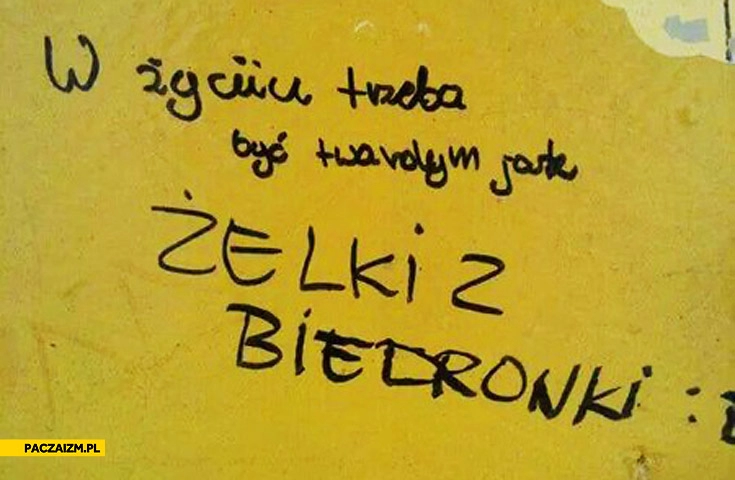 W życiu trzeba
być twardym jak
ŻELKi Z
BiEDRONKi :D
PACZAIZM.PL